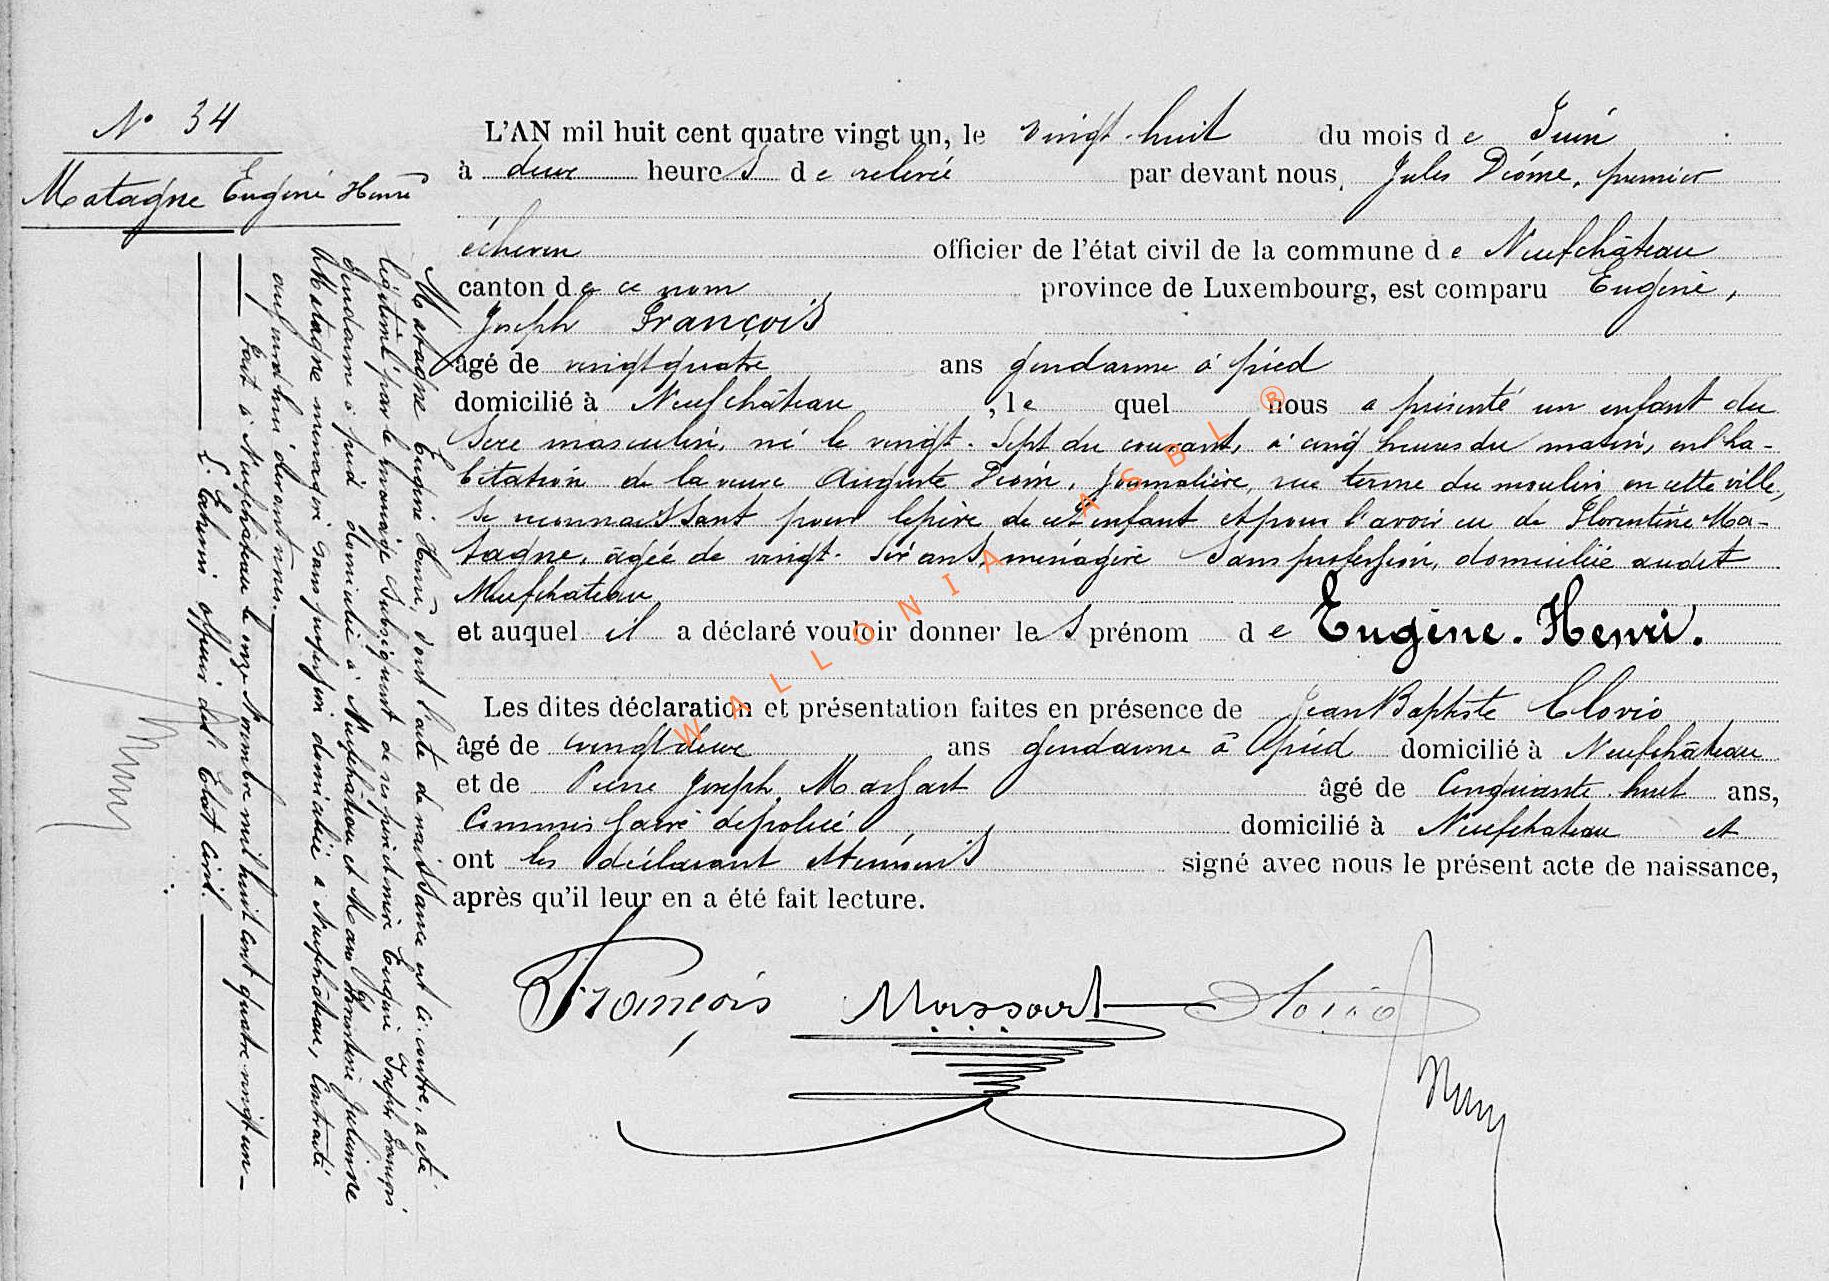 N° 34
Matagne Eugène Henri
L'AN mil huit cent quatre vingt un, le vingt-huit du mois de Juin
à deux heures de relevée par devant nous, Jules Dióme, premier
échevin officier de l'état civil de la commune de Neufchâteau
canton de ce nom province de Luxembourg, est comparu Eugène,
Joseph François
âgé de vingt quatre ans gendarme à pied
domicilié à Neufchâteau, le quel nous a présenté un enfant du
Sexe masculin, né le vingt-sept du courant, à cinq heures du matin, en l'ha-
bitation de la veuve Auguste, Journalière, rue terme du moulin en cette ville,
se reconnaissant pour le père de cet enfant et pour l'avoir eu de Florentine Ma-
tagne, âgée de vingt-six ans, ménagère sans profession, domiciliée audit
Neufchateau
et auquel il a déclaré vouloir donner les prénom de Eugène-Henri.
Les dites déclaration et présentation faites en présence de Jean Baptiste Clovio
âgé de vingt deux ans gendarme à pied domicilié à Neufchâteau
et de Pierre Joseph Massart âgé de Cinquante huit ans,
Commissaire de police domicilié à Neufchateau et
ont les déclarant et témoins signé avec nous le présent acte de naissance,
après qu'il leur en a été fait lecture.
François Massart Clovio
Matagne Eugène Henri, dont l'acte de naissance est ci-contre, a été
légitimé par le mariage subséquent de ses père et mère Eugène Joseph François
Gendarme à pied domicilié à Neufchâteau et Marie Florentine Julienne
Matagne ménagère sans profession domiciliée à Neufchâteau, Contracté
aujourd'hui devant nous.
Fait à Neufchâteau le onze Novembre mil huit cent quatre-vingt un
L'Echevin officier de l'Etat Civil.
WALLONIA ASBL ®